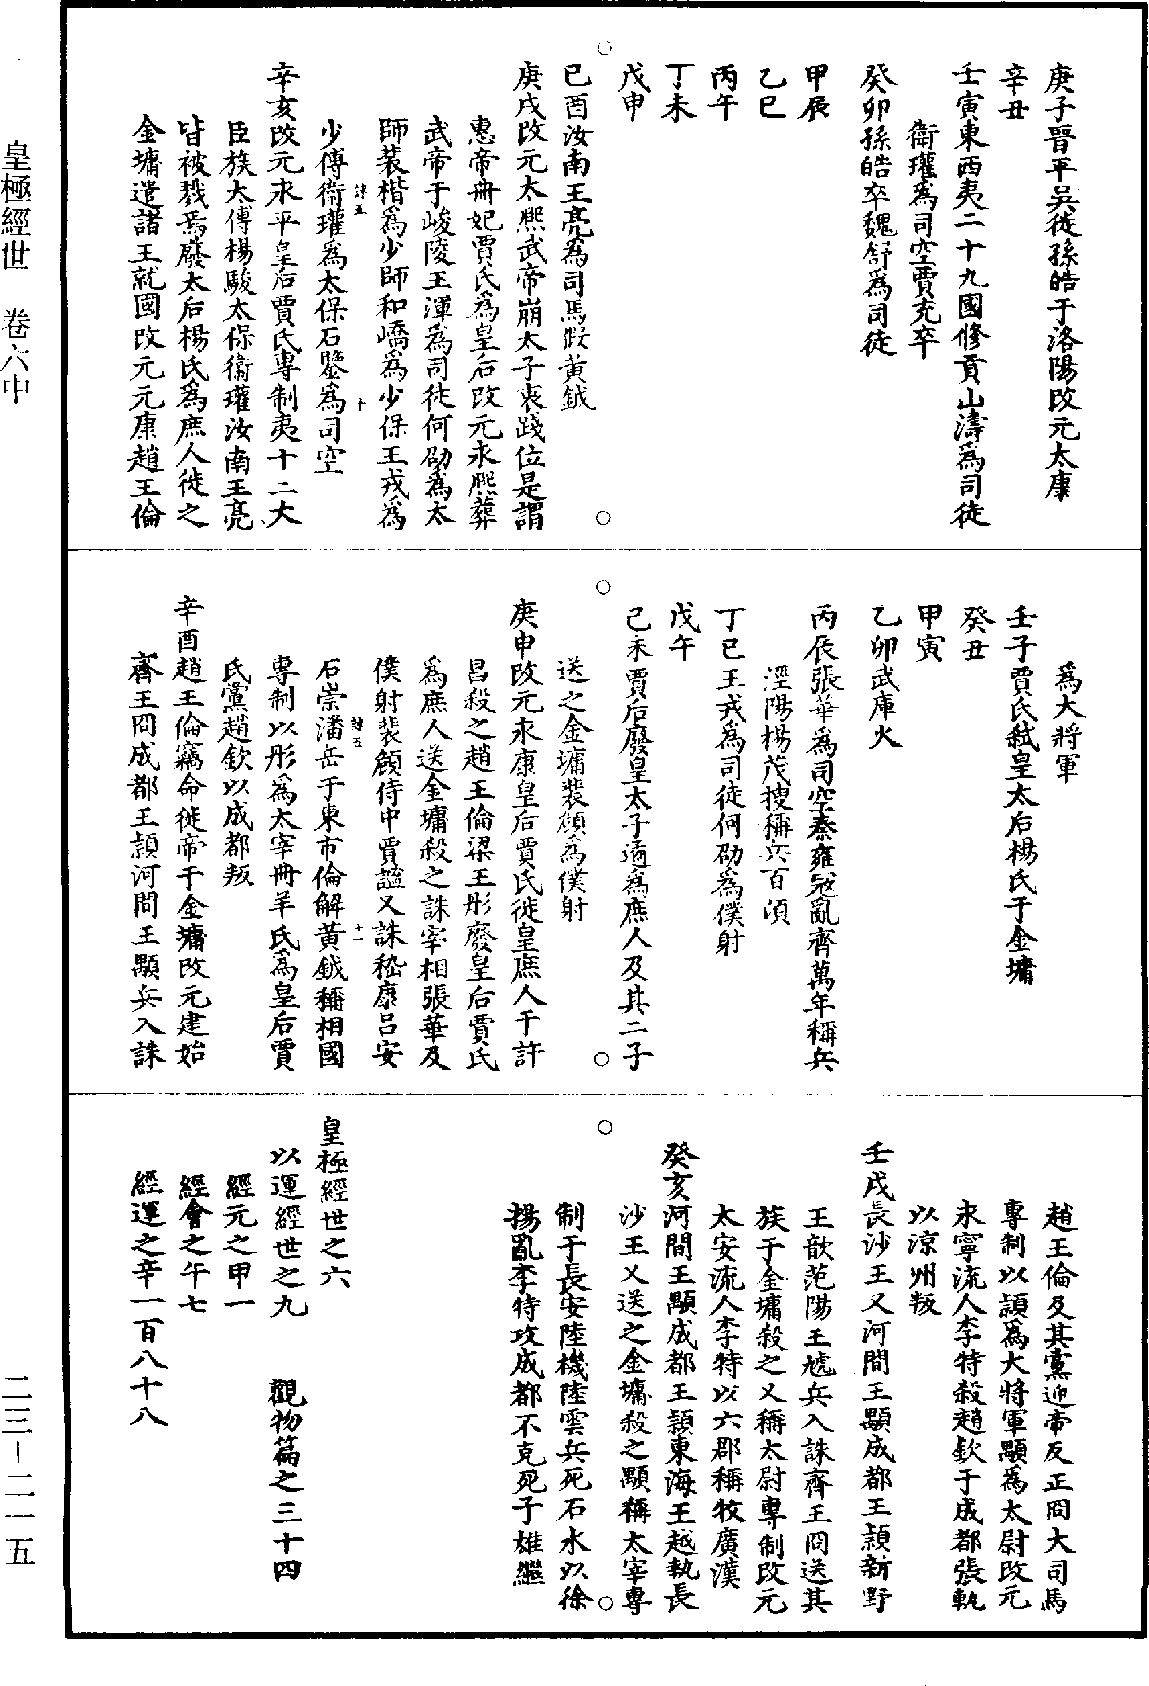 皇極經世　卷六中
庚子晉平吳徙孫皓于洛陽改元太康
辛丑
壬寅東西夷二十九國修貢山濤爲司徒
衛瓘爲司空賈充卒
癸卯孫皓卒魏舒爲司徒
甲辰
乙巳
丙午
丁未
戊申
己酉汝南王亮爲司馬假黃鉞
庚戌改元太熙武帝崩太子衷踐位是謂
惠帝冊妃賈氏爲皇后改元永熙葬
武帝于峻陵王渾爲司徒何劭爲太
師裴楷爲少師和嶠爲少保王戎爲
少傅衛瓘爲太保石鑒爲司空
辛亥改元永平皇后賈氏專制夷十二大
臣族太傅楊駿太保衛瓘汝南王亮
皆被戮焉廢太后楊氏爲庶人徙之
金墉遣諸王就國改元元康趙王倫
爲大將軍
壬子賈氏弒皇太后楊氏于金墉
癸丑
甲寅
乙卯武庫火
丙辰張華爲司空秦雍寇亂齊萬年稱兵
涇陽楊茂搜稱兵百頃
丁巳王戎爲司徒何劭爲僕射
戊午
己未賈后廢皇太子遹爲庶人及其二子
送之金墉裴頠爲僕射
庚申改元永康皇后賈氏徙皇庶人于許
昌殺之趙王倫梁王肜廢皇后賈氏
爲庶人送金墉殺之誅宰相張華及
僕射裴頠侍中賈謐又誅嵇康呂安
石崇潘岳于東市倫解黃鉞稱相國
專制以肜爲太宰冊羊氏爲皇后賈
氏黨趙欽以成都叛
辛酉趙王倫竊命徙帝于金墉改元建始
齊王冏成都王穎河間王顒兵入誅
趙王倫及其黨迎帝反正冏大司馬
專制以穎爲大將軍顒爲太尉改元
永寧流人李特殺趙欽于成都張軌
以涼州叛
壬戌長沙王乂河間王顒成都王穎新野
王歆范陽王虓兵入誅齊王冏送其
族于金墉殺之乂稱太尉專制改元
太安流人李特以六郡稱牧廣漢
癸亥河間王顒成都王穎東海王越執長
沙王乂送之金墉殺之顒稱太宰專
制于長安陸機陸雲兵死石氷以徐
揚亂李特攻成都不克死子雄繼
皇極經世之六
以運經世之九　觀物篇之三十四
經元之甲一
經會之午七
經運之辛一百八十八
二三－二一五